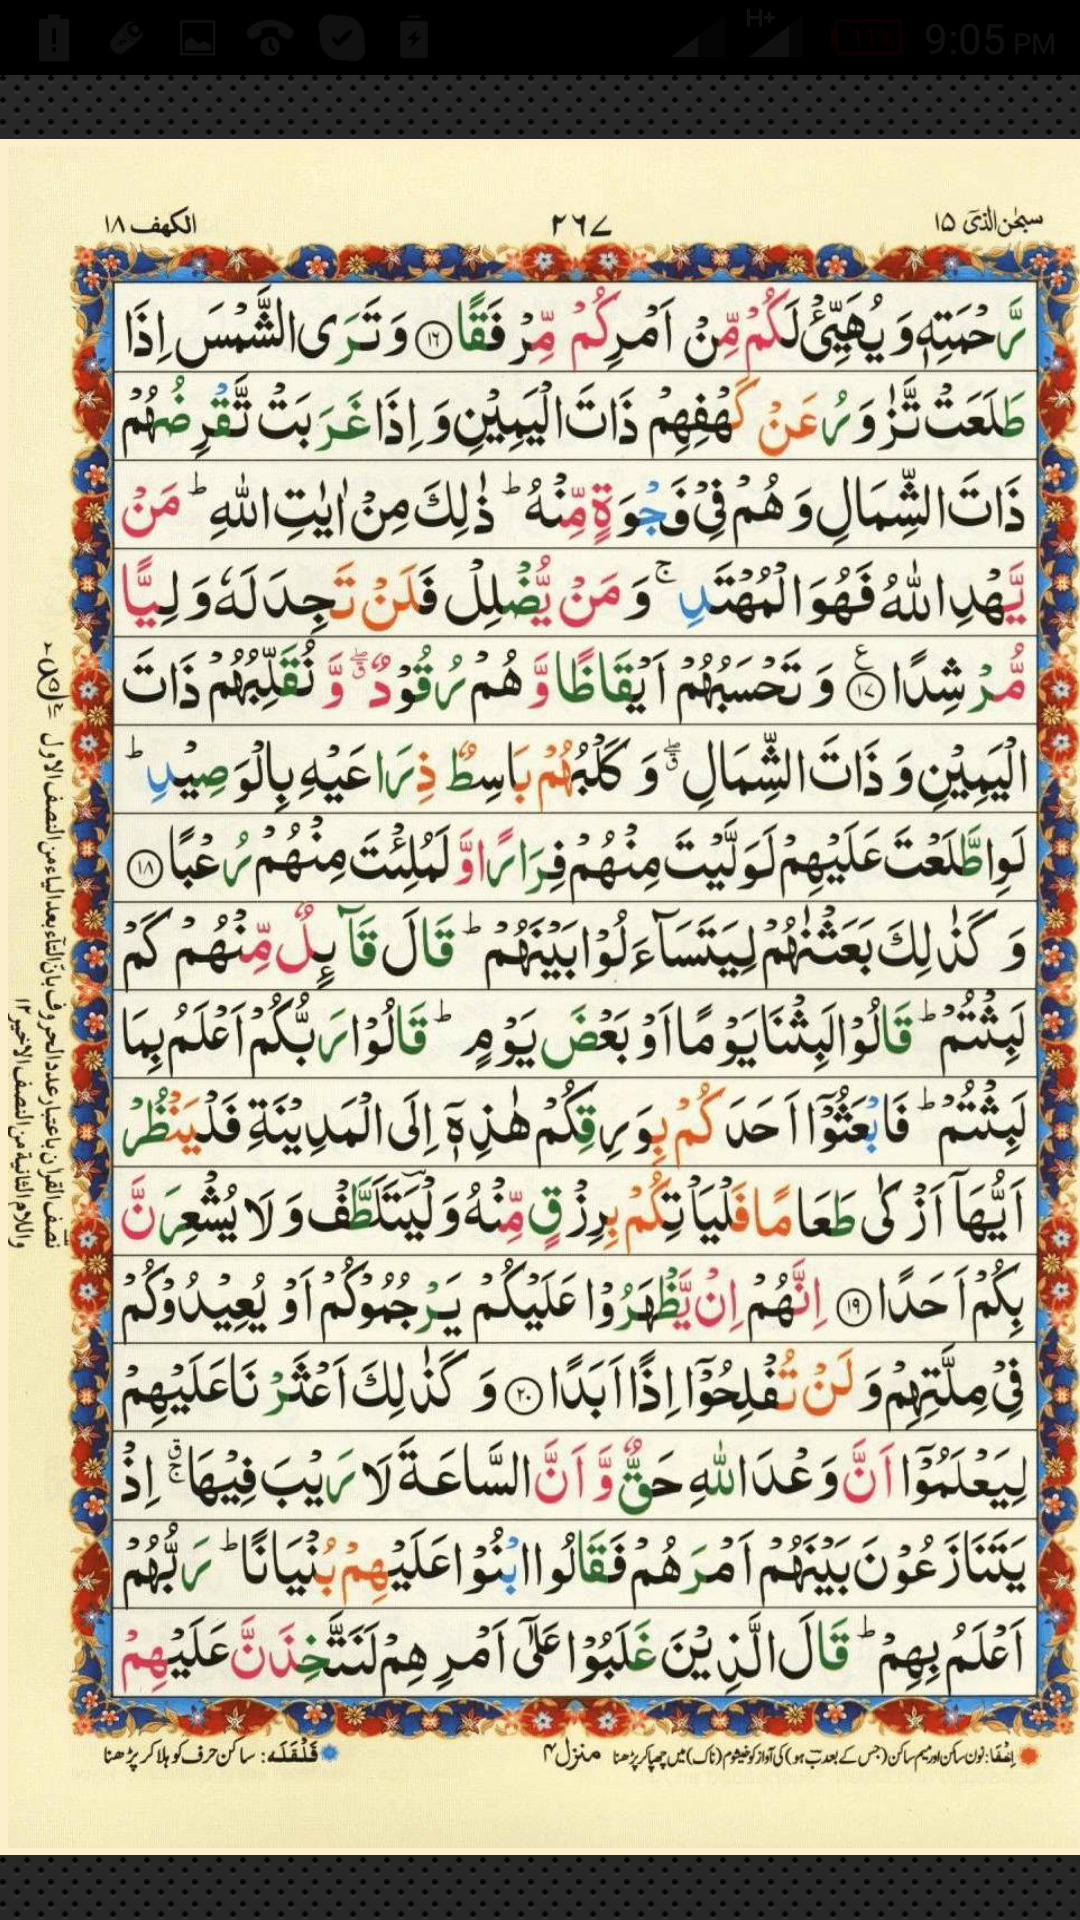 H+
11%
9:05 PM
سبحٰن الذیٓ ۱۵
۲۶۷
الکهف ۱۸
رَّحْمَتِهٖ وَ یُهَیِّئْ لَكُمْ مِّنْ اَمْرِكُمْ مِّرْفَقًا ۝۱۶ وَ تَرَی الشَّمْسَ اِذَا
طَلَعَتْ تَّزٰوَرُ عَنْ كَهْفِهِمْ ذَاتَ الْیَمِیْنِ وَ اِذَا غَرَبَتْ تَّقْرِضُهُمْ
ذَاتَ الشِّمَالِ وَ هُمْ فِیْ فَجْوَةٍ مِّنْهُ ؕ ذٰلِكَ مِنْ اٰیٰتِ اللّٰهِ ؕ مَنْ
یَّهْدِ اللّٰهُ فَهُوَ الْمُهْتَدِ ۚ وَ مَنْ یُّضْلِلْ فَلَنْ تَجِدَ لَهٗ وَلِیًّا
مُّرْشِدًا ۝۱۷ ع وَ تَحْسَبُهُمْ اَیْقَاظًا وَّ هُمْ رُقُوْدٌ ۖۗ وَّ نُقَلِّبُهُمْ ذَاتَ
الْیَمِیْنِ وَ ذَاتَ الشِّمَالِ ۖۗ وَ كَلْبُهُمْ بَاسِطٌ ذِرَاعَیْهِ بِالْوَصِیْدِ ؕ
لَوِ اطَّلَعْتَ عَلَیْهِمْ لَوَلَّیْتَ مِنْهُمْ فِرَارًا وَّ لَمُلِئْتَ مِنْهُمْ رُعْبًا ۝۱۸
وَ كَذٰلِكَ بَعَثْنٰهُمْ لِیَتَسَآءَلُوْا بَیْنَهُمْ ؕ قَالَ قَآىِٕلٌ مِّنْهُمْ كَمْ
لَبِثْتُمْ ؕ قَالُوْا لَبِثْنَا یَوْمًا اَوْ بَعْضَ یَوْمٍ ؕ قَالُوْا رَبُّكُمْ اَعْلَمُ بِمَا
لَبِثْتُمْ ؕ فَابْعَثُوْۤا اَحَدَكُمْ بِوَرِقِكُمْ هٰذِهٖۤ اِلَی الْمَدِیْنَةِ فَلْیَنْظُرْ
اَیُّهَاۤ اَزْكٰی طَعَامًا فَلْیَاْتِكُمْ بِرِزْقٍ مِّنْهُ وَ لْیَتَلَطَّفْ وَ لَا یُشْعِرَنَّ
بِكُمْ اَحَدًا ۝۱۹ اِنَّهُمْ اِنْ یَّظْهَرُوْا عَلَیْكُمْ یَرْجُمُوْكُمْ اَوْ یُعِیْدُوْكُمْ
فِیْ مِلَّتِهِمْ وَ لَنْ تُفْلِحُوْۤا اِذًا اَبَدًا ۝۲۰ وَ كَذٰلِكَ اَعْثَرْنَا عَلَیْهِمْ
لِیَعْلَمُوْۤا اَنَّ وَعْدَ اللّٰهِ حَقٌّ وَّ اَنَّ السَّاعَةَ لَا رَیْبَ فِیْهَا ۚۗ اِذْ
یَتَنَازَعُوْنَ بَیْنَهُمْ اَمْرَهُمْ فَقَالُوا ابْنُوْا عَلَیْهِمْ بُنْیَانًا ؕ رَبُّهُمْ
اَعْلَمُ بِهِمْ ؕ قَالَ الَّذِیْنَ غَلَبُوْا عَلٰۤی اَمْرِهِمْ لَنَتَّخِذَنَّ عَلَیْهِمْ
نصف القرآن باعتبار عدد الحروف بان التاء بعد الیاء من النصف الاول
واللام الثانیة من النصف الاخیر ۱۲
اِخفا: نون ساکن اور میم ساکن (جس کے بعد ب ہو) کی آواز کو خیشوم (ناک) میں چھپا کر پڑھنا
منزل ۴
قَلْقَلَه: ساکن حرف کو ہلا کر پڑھنا